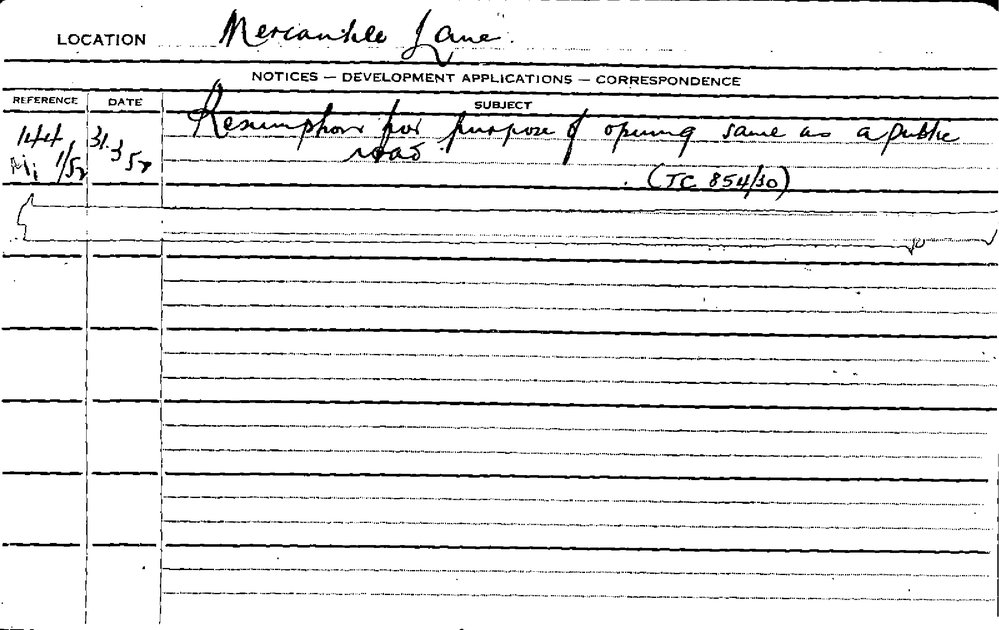 LOCATION Mercantile Lane
NOTICES — DEVELOPMENT APPLICATIONS — CORRESPONDENCE
REFERENCE DATE SUBJECT
144 31.3 Resumption for purpose of opening same as a public
1/52 52 road
(TC 854/30)